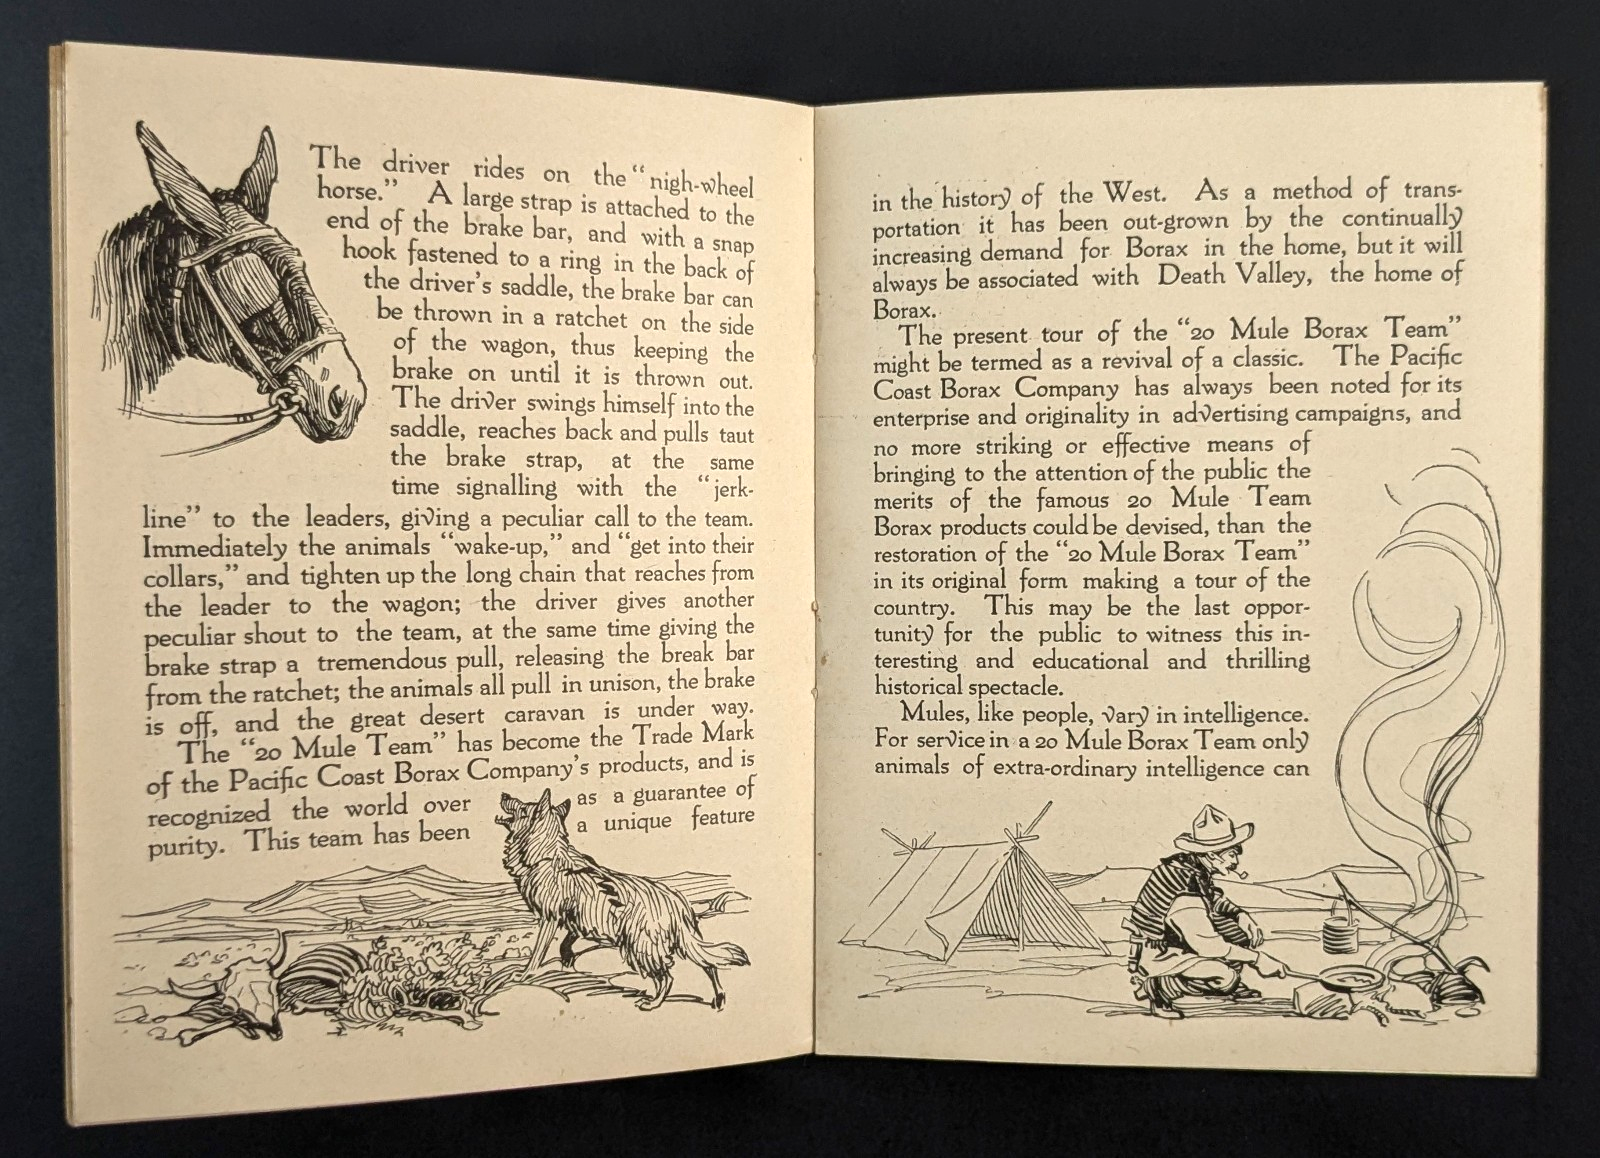 The driver rides on the "nigh-wheel
horse." A large strap is attached to the
end of the brake bar, and with a snap
hook fastened to a ring in the back of
the driver's saddle, the brake bar can
be thrown in a ratchet on the side
of the wagon, thus keeping the
brake on until it is thrown out.
The driver swings himself into the
saddle, reaches back and pulls taut
the brake strap, at the same
time signalling with the "jerk-
line" to the leaders, giving a peculiar call to the team.
Immediately the animals "wake-up," and "get into their
collars," and tighten up the long chain that reaches from
the leader to the wagon; the driver gives another
peculiar shout to the team, at the same time giving the
brake strap a tremendous pull, releasing the break bar
from the ratchet; the animals all pull in unison, the brake
is off, and the great desert caravan is under way.
The "20 Mule Team" has become the Trade Mark
of the Pacific Coast Borax Company's products, and is
recognized the world over as a guarantee of
purity. This team has been a unique feature
in the history of the West. As a method of trans-
portation it has been out-grown by the continually
increasing demand for Borax in the home, but it will
always be associated with Death Valley, the home of
Borax.
The present tour of the "20 Mule Borax Team"
might be termed as a revival of a classic. The Pacific
Coast Borax Company has always been noted for its
enterprise and originality in advertising campaigns, and
no more striking or effective means of
bringing to the attention of the public the
merits of the famous 20 Mule Team
Borax products could be devised, than the
restoration of the "20 Mule Borax Team"
in its original form making a tour of the
country. This may be the last oppor-
tunity for the public to witness this in-
teresting and educational and thrilling
historical spectacle.
Mules, like people, vary in intelligence.
For service in a 20 Mule Borax Team only
animals of extra-ordinary intelligence can